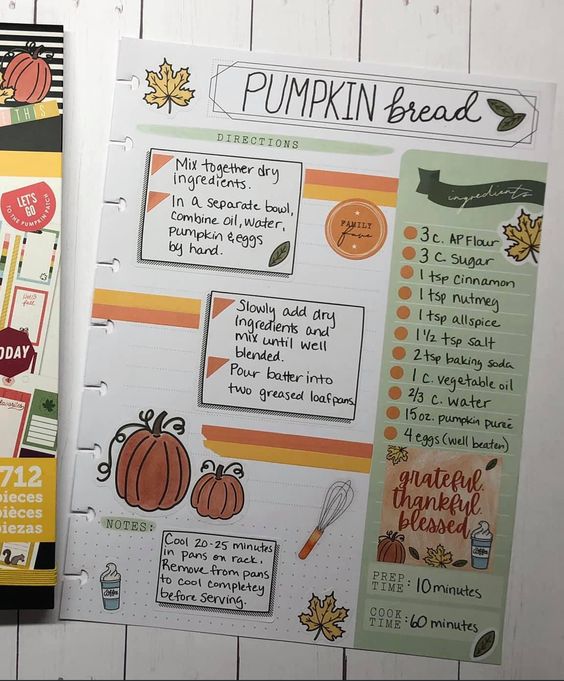 THIS
LET'S
GO
TO THE PUMPKIN PATCH
TODAY
712
pieces
pièces
piezas
PUMPKIN bread
DIRECTIONS
Mix together dry
ingredients.
In a separate bowl,
combine oil, water,
pumpkin & eggs
by hand.
FAMILY
fave
Slowly add dry
ingredients and
mix until well
blended.
Pour batter into
two greased loaf pans.
NOTES:
Cool 20-25 minutes
in pans on rack.
Remove from pans
to cool completey
before serving.
Coffee
ingredients
3 c. AP Flour
3 c. Sugar
1 tsp cinnamon
1 tsp nutmeg
1 tsp allspice
1 1/2 tsp salt
2 tsp baking soda
1 c. vegetable oil
2/3 c. water
15 oz. pumpkin pureé
4 eggs (well beaten)
grateful.
thankful.
blessed.
Coffee
PREP TIME: 10 minutes
COOK TIME: 60 minutes